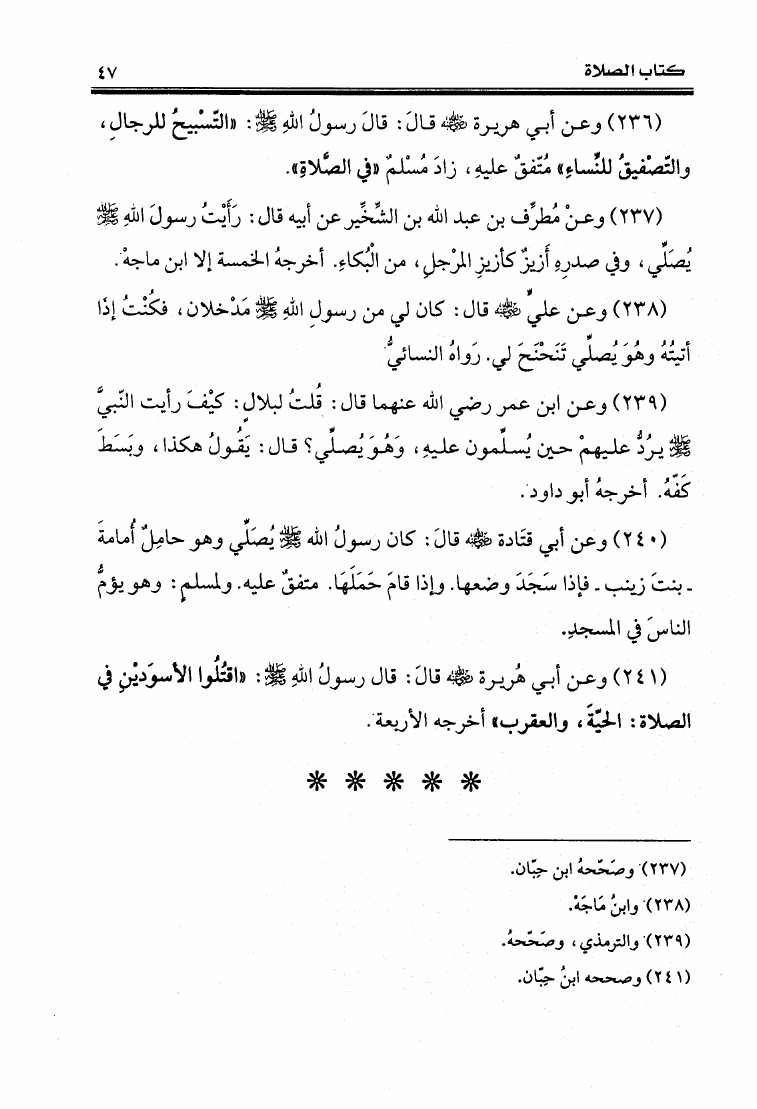 كتاب الصلاة ٤٧
(٢٣٦) وعن أبي هريرة ﵁ قالَ: قالَ رسولُ اللهِ ﷺ: «التَّسْبيحُ للرجالِ،
والتَّصْفيقُ للنِّساءِ» مُتّفقٌ عليهِ، زادَ مُسْلمٌ «في الصَّلاةِ».
(٢٣٧) وعنْ مُطرِّف بن عبد الله بن الشِّخّير عن أبيه قال: رَأَيْتُ رسولَ اللهِ ﷺ
يُصَلِّي، وفي صدرِهِ أزيزٌ كأزيزِ المرْجلِ، من الْبُكاءِ. أخرجهُ الخمسة إلا ابن ماجهْ.
(٢٣٨) وعن عليٍّ ﵁ قال: كان لي من رسولِ اللهِ ﷺ مَدْخلان، فكُنْتُ إذَا
أتيتُهُ وهُوَ يُصلِّي تَنَحْنَحَ لي. رَواهُ النسائيُّ
(٢٣٩) وعن ابن عمر رضي الله عنهما قال: قُلتُ لبلالٍ: كيْفَ رأيت النّبيَّ
ﷺ يرُدُّ عليهمْ حين يُسلِّمون عليهِ، وَهُوَ يُصلِّي؟ قال: يَقُولُ هكذا، وبَسَطَ
كَفّهُ. أخرجهُ أبو داود.
(٢٤٠) وعن أبي قتَادة ﵁ قالَ: كان رسولُ الله ﷺ يُصَلِّي وهو حامِلٌ أُمامةَ
ـ بنتَ زينب ـ فإذا سَجَدَ وضعها. وإذا قامَ حَمَلَهَا. متفقٌ عليه. ولمسلمٍ: وهو يؤمُّ
الناسَ في المسجدِ.
(٢٤١) وعن أبي هُريرة ﵁ قالَ: قال رسولُ اللهِ ﷺ: «اقتُلُوا الأسوَديْنِ في
الصلاة: الحيَّةَ، والعقرب» أخرجه الأربعة.
(٢٣٧) وصَحّحهُ ابن حِبّان.
(٢٣٨) وابنُ مَاجَهْ.
(٢٣٩) والترمذي، وصَحّحهُ.
(٢٤١) وصححه ابنُ حِبّان.